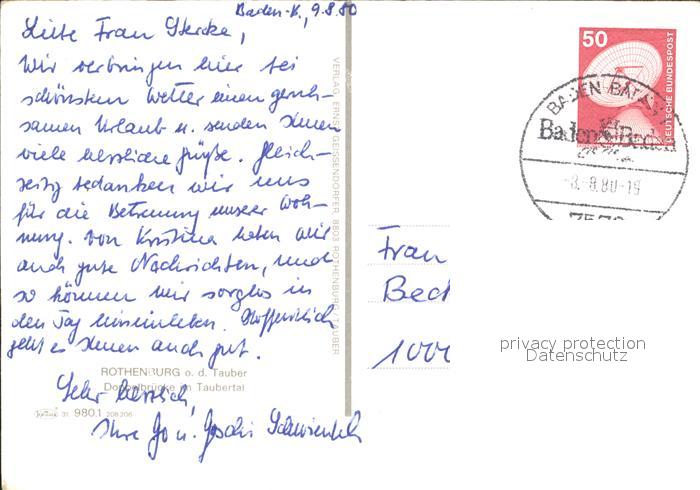 Baden-B., 9.8.80
Liebe Frau Stercke,
Wir verbringen hier bei
schönstem Wetter einen geruh-
samen Urlaub u. senden Ihnen
viele herzliche Grüße. Gleich-
zeitig bedanken wir uns
für die Betreuung unserer Woh-
nung. Von Kristina haben wir
auch gute Nachrichten, und
so können wir sorglos in
den Tag hineinleben. Hoffentlich
geht es Ihnen auch gut.
Sehr herzlich,
Ihre Jo u.
VERLAG ERNST GEISSENDÖRFER 8803 ROTHENBURG/TAUBER
ROTHENBURG o. d. Tauber
Doppelbrücke im Taubertal
31 980.1 208 206
50
DEUTSCHE BUNDESPOST
BADEN-BADEN
Baden Baden
-8.-8.80-19
7570
Frau
Bed
1000
privacy protection
Datenschutz